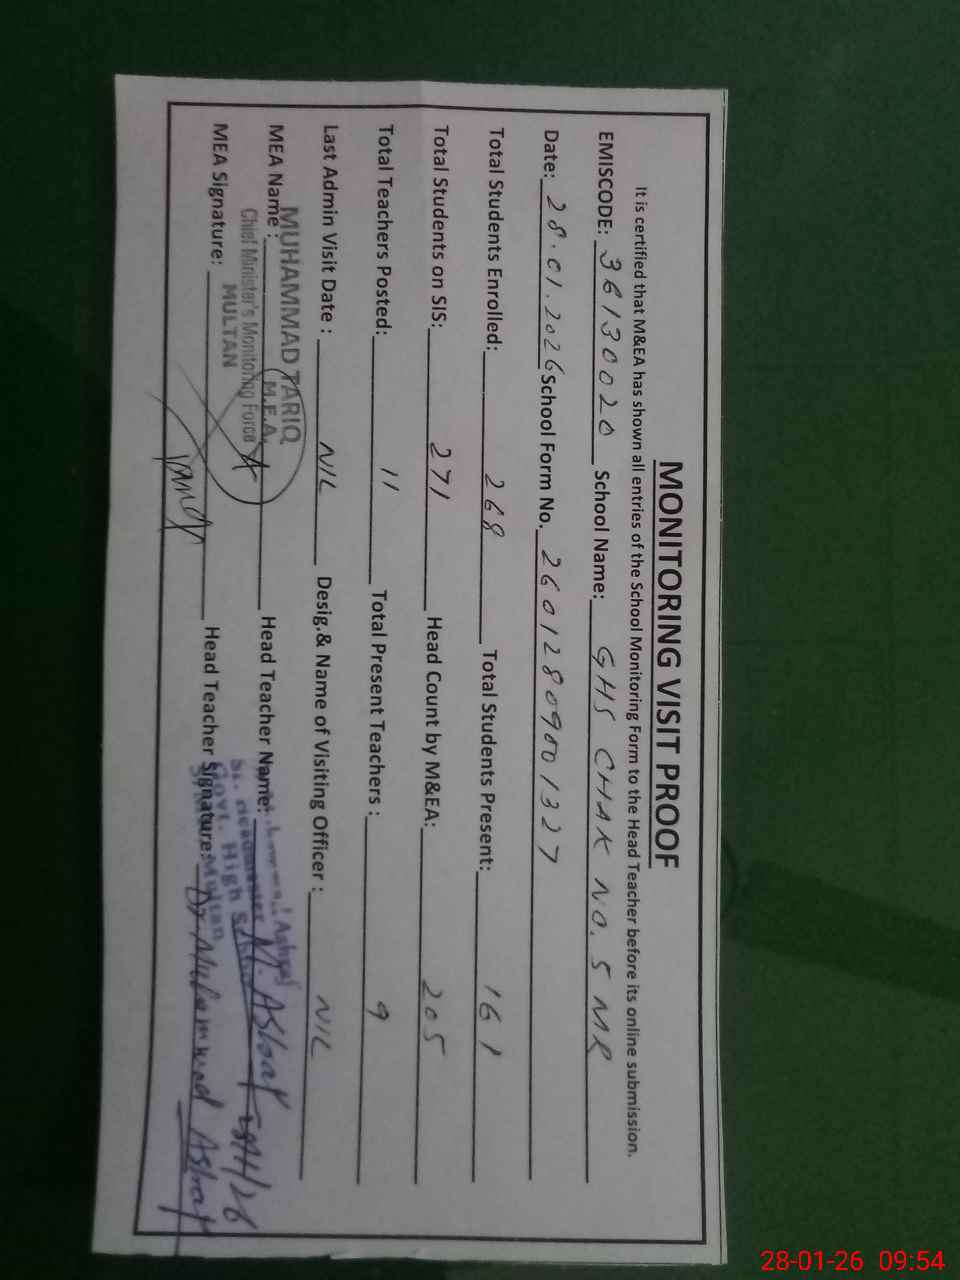 MONITORING VISIT PROOF
It is certified that M&EA has shown all entries of the School Monitoring Form to the Head Teacher before its online submission.
EMISCODE: 36130020 School Name: GHS CHAK NO. 5 MR
Date: 28.01.2026 School Form No. 26012809001327
Total Students Enrolled: 268 Total Students Present: 161
Total Students on SIS: 271 Head Count by M&EA: 205
Total Teachers Posted: 11 Total Present Teachers : 9
Last Admin Visit Date : NIL Desig.& Name of Visiting Officer : NIL
MUHAMMAD TARIQ
M.E.A.
MEA Name : Head Teacher Name: M. Ashraf
Chief Minister's Monitoring Force
MULTAN
Sr. Headmaster
Govt. High School
Multan
MEA Signature: Tariq Head Teacher Signature: Dr Muhammad Ashraf
28-01-26 09:54